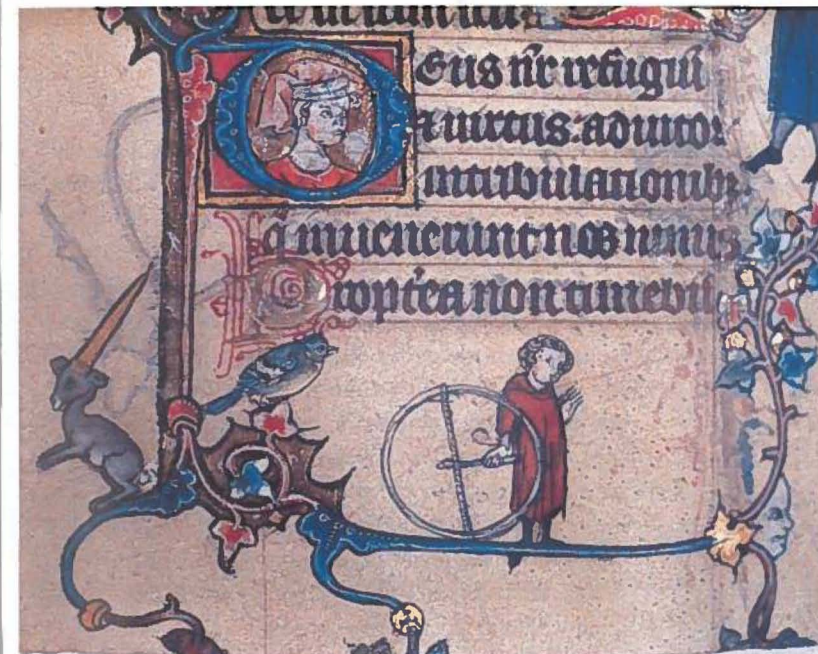 Deus nr̄ refugiū
& uirtus: adiutor
in tribulationib;
q̄ inuenerunt nos nimis
Propt̄ea non timebim